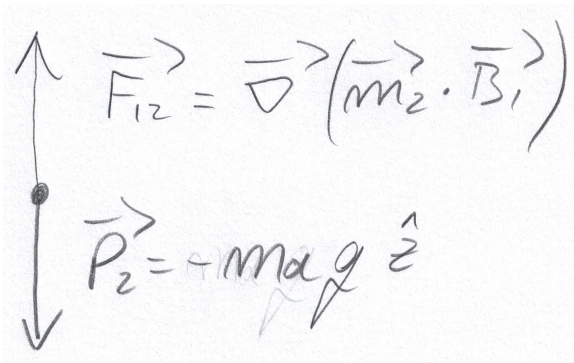 F⃗₁₂ = ∇⃗(m⃗₂ · B⃗₁)
P⃗₂ = -mα g ẑ